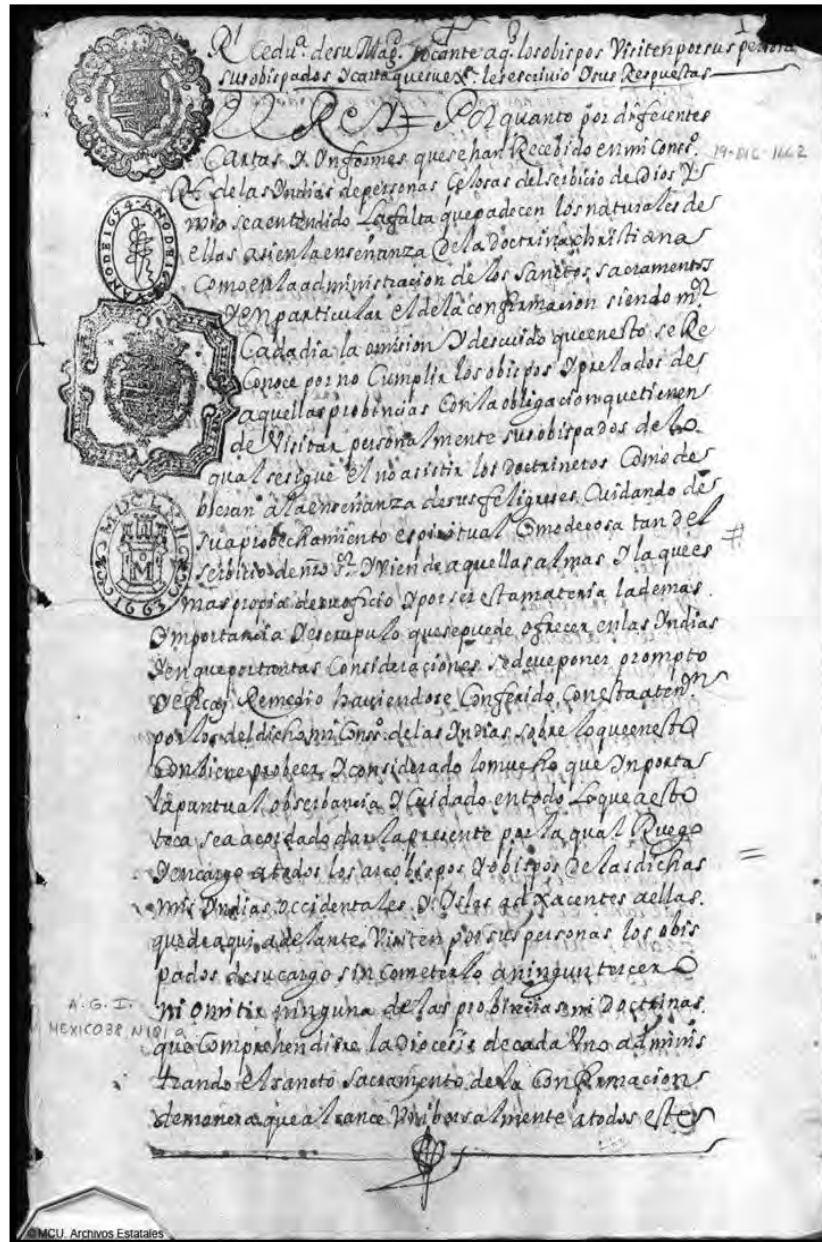 1
Rl Cedua. de su Magd. tocante a q. los obispos Visiten por sus personas
sus obispados Y carta que su exa. les escrivio Y sus Respuestas
El Rey = Por quanto por diferentes
19-DIC-1662
Cartas Y Ynformes que se han Recebido en mi Conso.
Rl. de las Yndias de personas Celosas del serbicio de Dios Y
mio sea entendido La falta que padecen los naturales de
ellas asi en la enseñanza de la Doctrina christiana
Como en la administracion de los Sanctos sacramentos
Y en particular el de la confirmacion siendo mor
Cada dia la omision Y descuido que en esto se Re
Conoce por no Cumplir los obispos Y prelados de
aquellas probincias Con la obligacion que tienen
de Visitar personalmente sus obispados de lo
qual se sigue el no asistir los Doctrineros Como de
bieran a la enseñanza de sus feligreses Cuidando de
su aprobechamiento espiritual Como de cosa tan del
serbicio de nro Sr. Y vien de aquellas almas Y la que es
mas propia de su oficio Y por ser esta materia la de mas
Ymportancia Y escrupulo que se puede ofrecer en las Yndias
Y en que por tantas Consideraciones se deve poner prompto
Y eficaz Remedio haviendose Conferido Con esta atenon
por los del dicho mi Conso. de las Yndias sobre lo que en esto
Conbiene probeer Y considerado lo mucho que Ynporta
la puntual obserbancia Y Cuidado en todo Lo que a esto
toca sea acordado dar la presente por la qual Ruego
Y encargo a todos los arcobispos Y obispos de las dichas
mis Yndias occidentales Y Yslas adxacentes a ellas
que de aqui adelante Visiten por sus personas los obis
pados de su cargo sin cometerlo a ningun tercero
ni omitir ninguna de las probincias ni Doctrinas
que Comprehendiere la Diocesis de cada Uno adminis
trando el sancto Sacramento de la Confirmacion
de manera que alcance Unibersalmente a todos este
A.G.I.
MEXICO 38, N 18
AÑO DE 1654
MDCLXII
1663
©MCU. Archivos Estatales